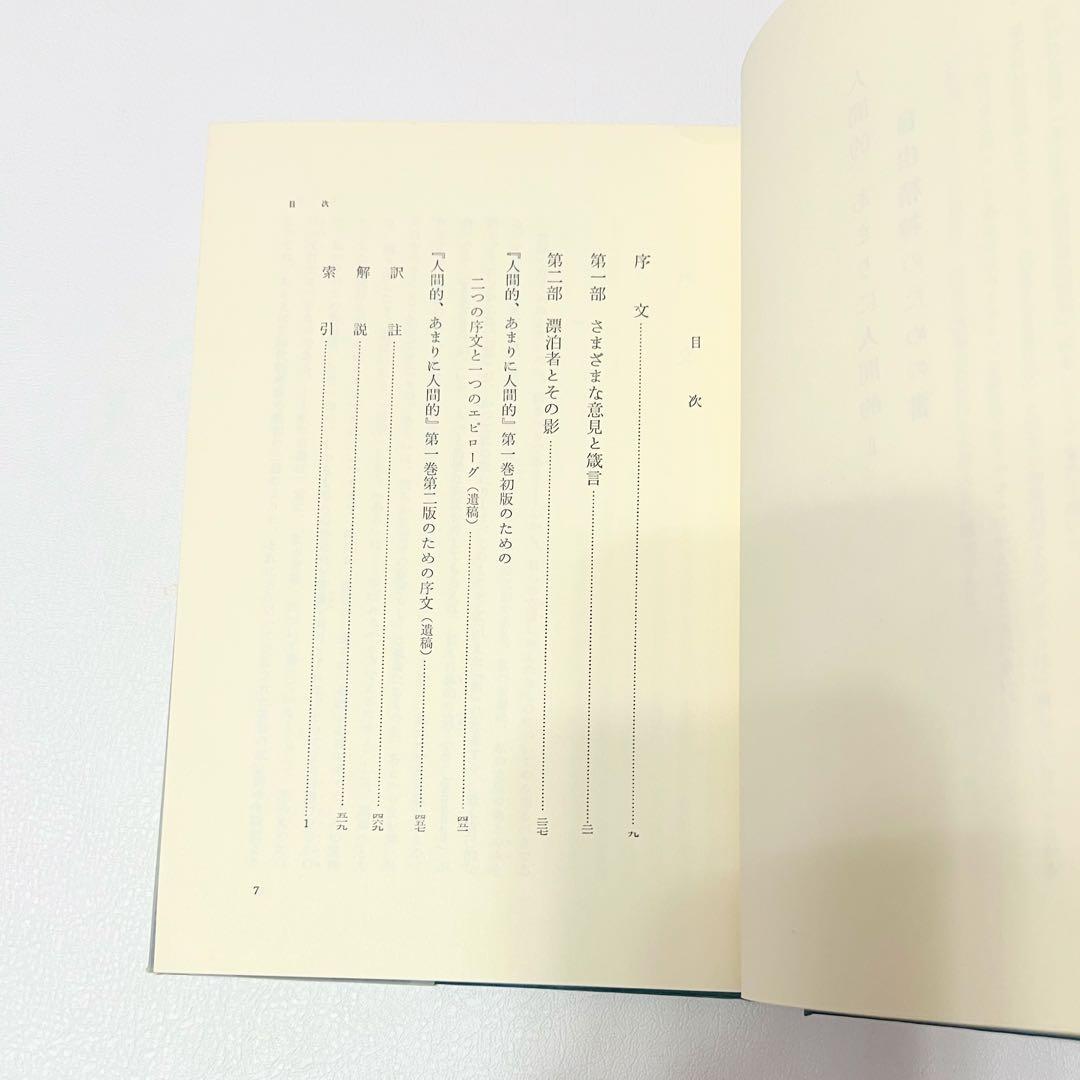 目次
序文……九
第一部 さまざまな意見と箴言……二一
第二部 漂泊者とその影……二二七
『人間的、あまりに人間的』第一巻初版のための
二つの序文と一つのエピローグ（遺稿）……四五一
『人間的、あまりに人間的』第一巻第二版のための序文（遺稿）……四五七
訳註……四六九
解説……五一九
索引……1
目次
7